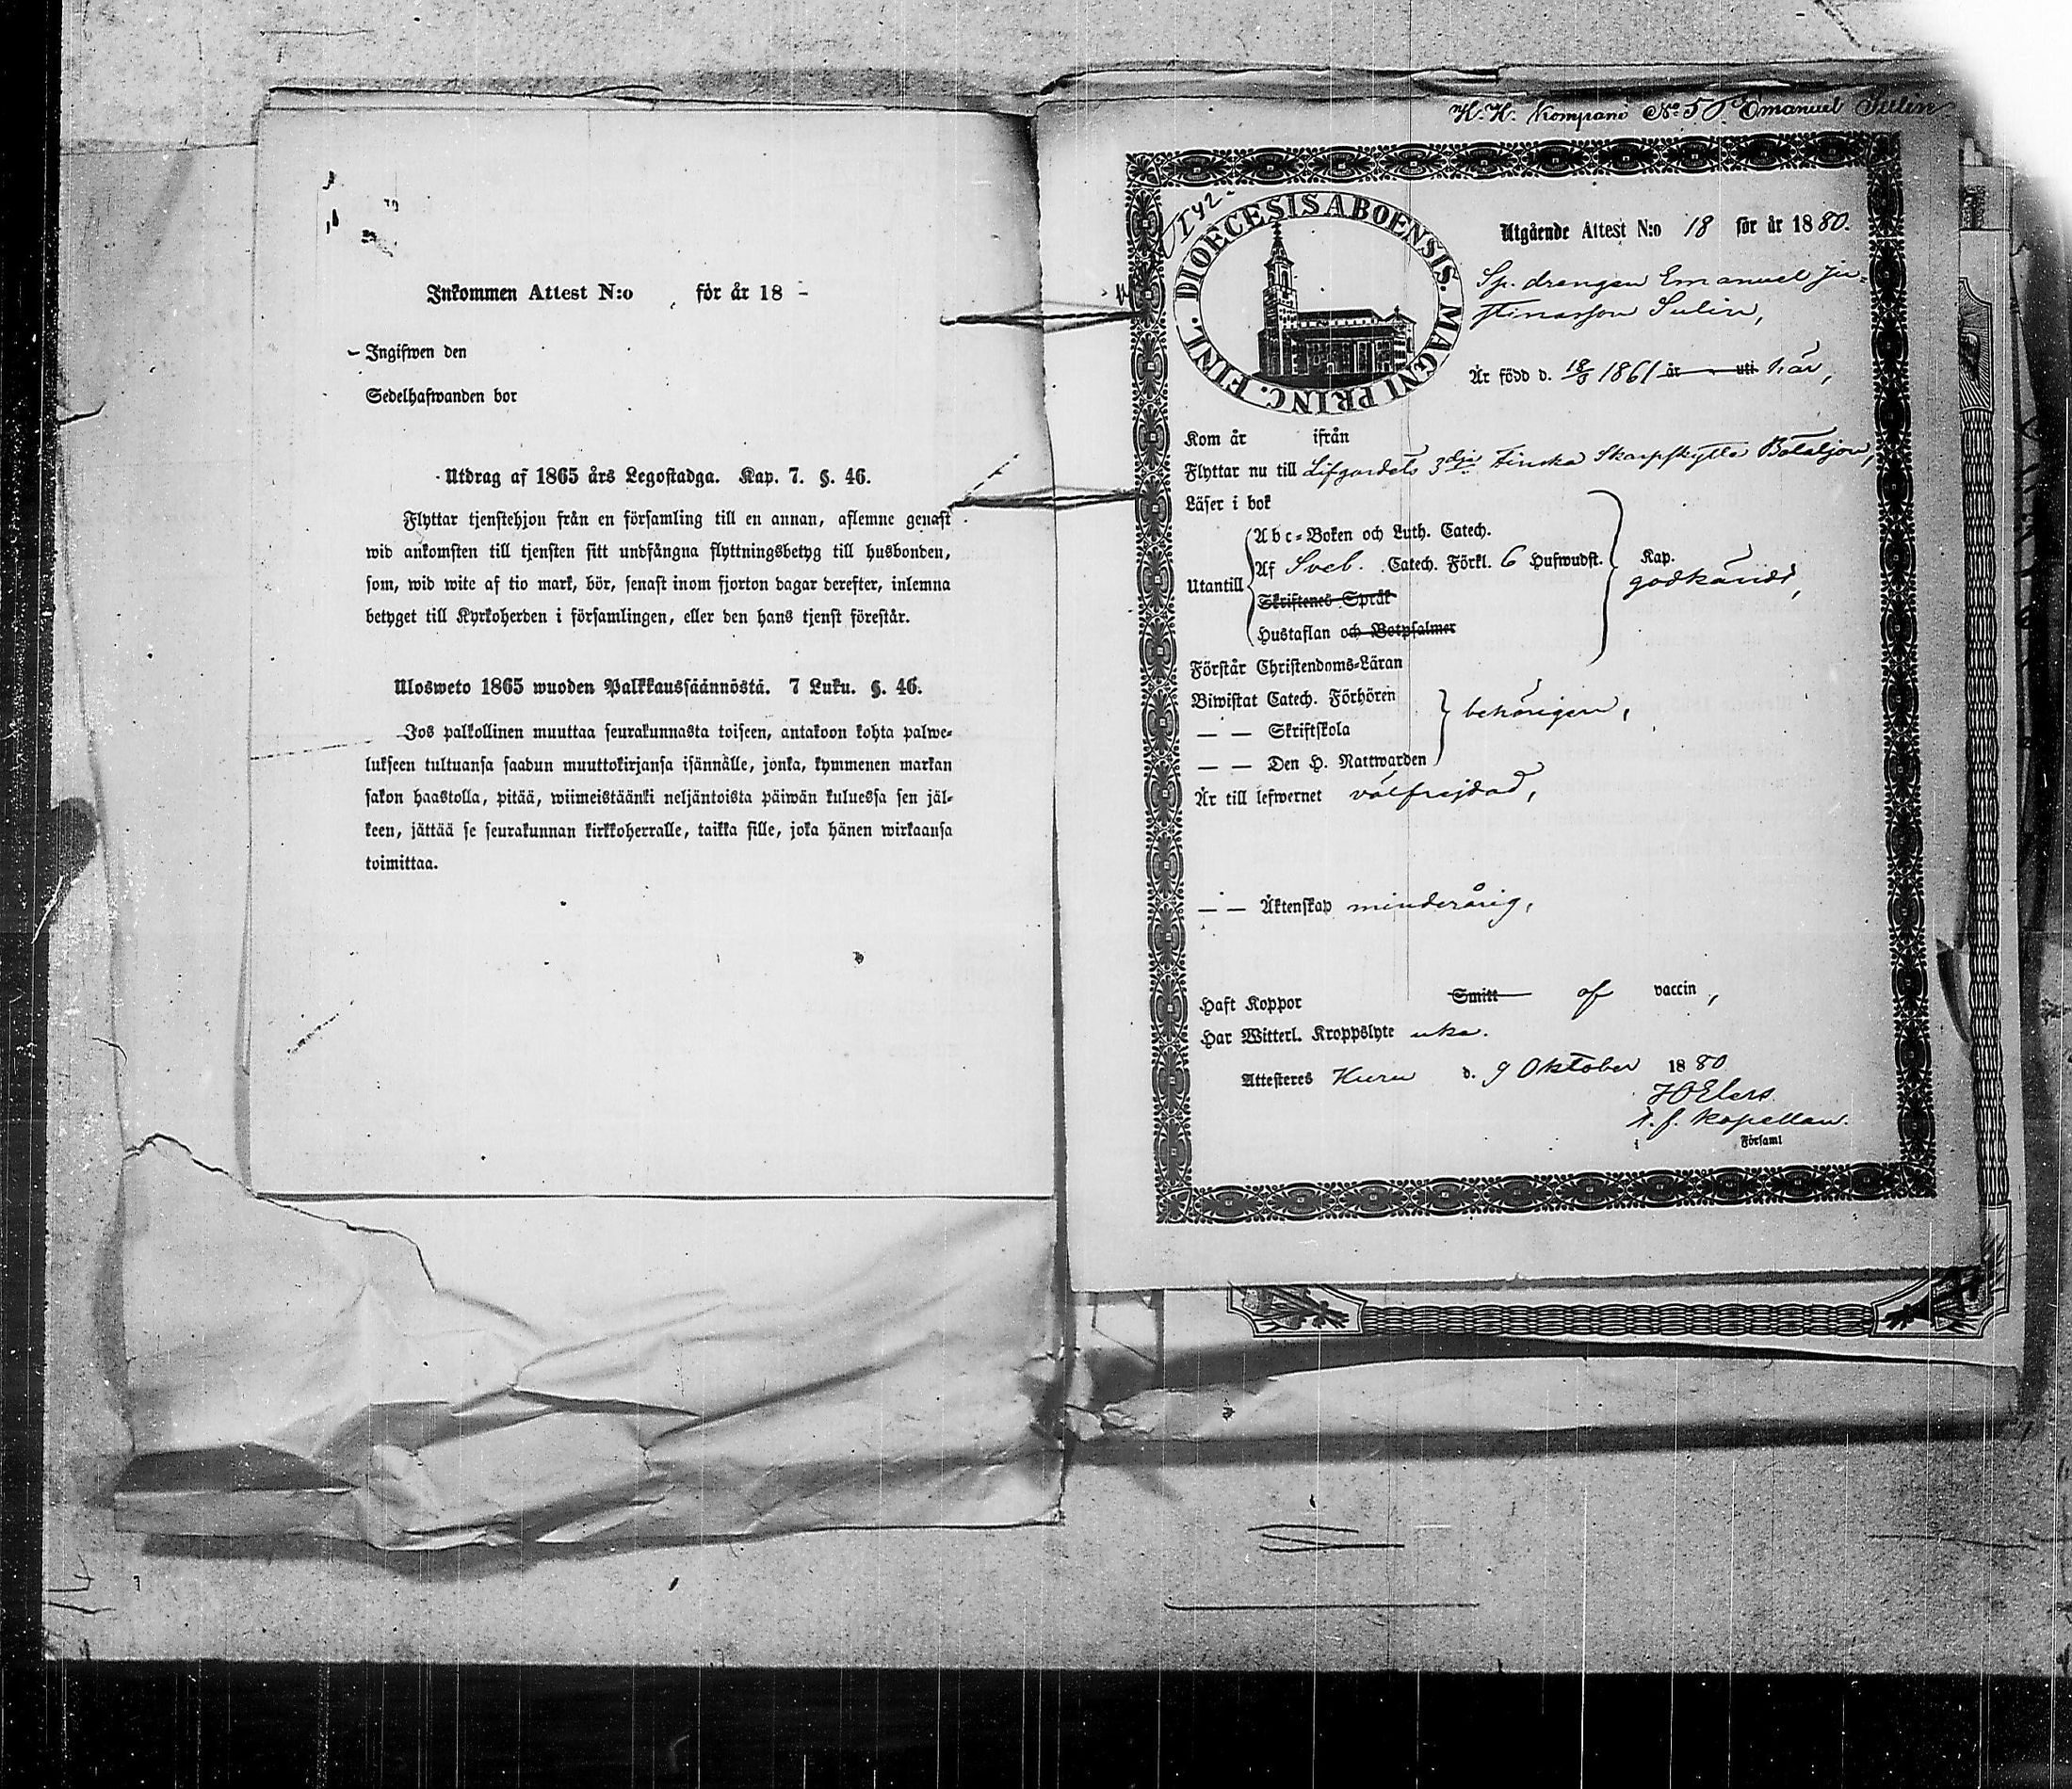 Inkommen Attest N:o för år 18 -
Ingifwen den
Sedelhafwanden bor
Utdrag af 1865 års Legostadga. Kap. 7. §. 46.
Flyttar tjenstehjon från en församling till en annan, aflemne genast
wid ankomsten till tjensten sitt undfångna flyttningsbetyg till husbonden,
som, wid wite af tio mark, bör, senast inom fjorton dagar derefter, inlemna
betyget till Kyrkoherden i församlingen, eller den hans tjenst förestår.
Ulosweto 1865 wuoden Palkkaussäännöstä. 7 Luku. §. 46.
Jos palkollinen muuttaa seurakunnasta toiseen, antakoon kohta palwe-
lukseen tultuansa saadun muuttokirjansa isännälle, jonka, kymmenen markan
sakon haastolla, pitää, wiimeistäänki neljäntoista päiwän kuluessa sen jäl-
keen, jättää se seurakunnan kirkkoherralle, taikka sille, joka hänen wirkaansa
toimittaa.
H. H. Kompani No 50. Emanuel Sulin
DIOECESIS ABOENSIS. MAGNI PRINC. FINL.
Utgående Attest N:o 18 för år 1880.
Sp. drengen Emanuel Ju-
stinasson Sulin,
Är född d. 18/3 1861 år uti här,
Kom år ifrån
Flyttar nu till Lifgardets 3dje Finska Skarpskytte Bataljon,
Läser i bok
Abc-Boken och Luth. Catech.
Utantill Af Sveb. Catech. Förkl. 6 Hufwudst. Kap. godkändt,
Skriftenes Språk
Hustaflan och Botpsalmer
Förstår Christendoms-Läran
Biwistat Catech. Förhören
— — Skriftskola behörigen,
— — Den H. Nattwarden
Är till lefwernet välfrejdad,
— — Äktenskap minderårig,
Haft Koppor Smitt af vaccin,
Har Witterl. Kroppslyte
Attesteres Kuru d. 9 Oktober 1880
Elers
t. f. Kapellan.
i Församl